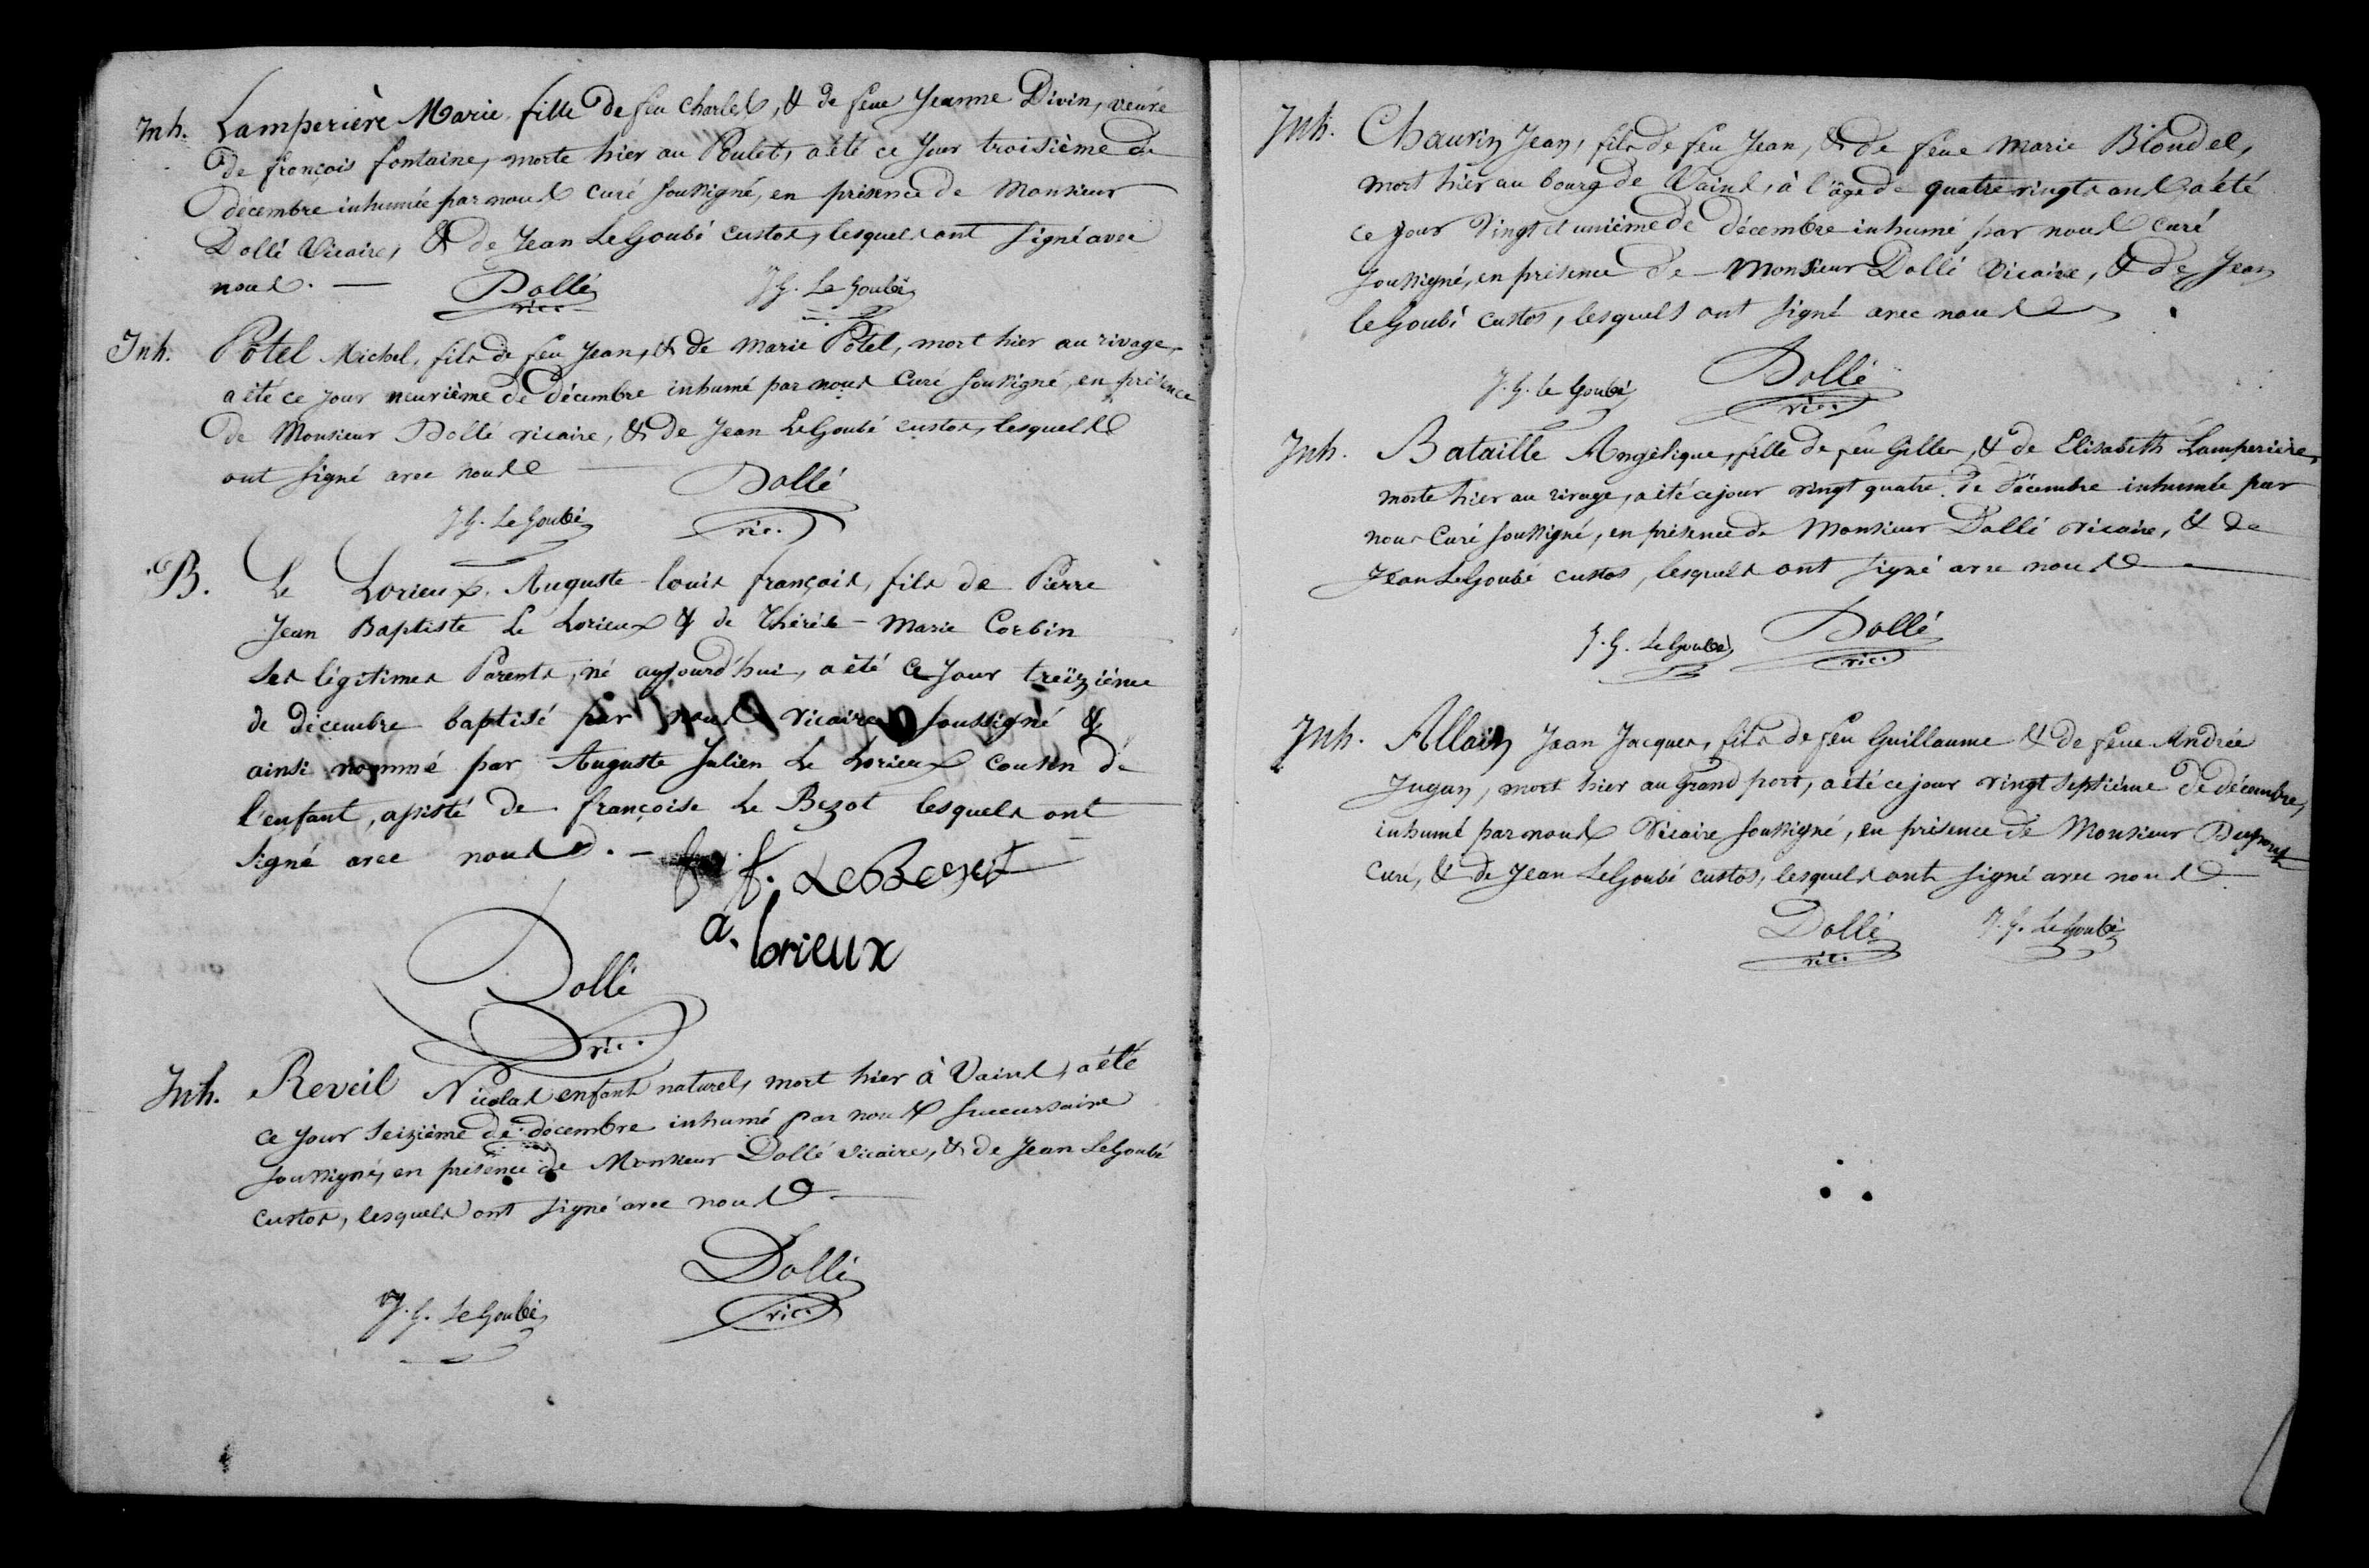 Inh. Lamperière Marie, fille de feu Charles, & de feue Jeanne Divin, veuve
de françois fontaine, morte hier au Poulet, a été ce jour troisième de
décembre inhumée par nous curé soussigné, en présence de Monsieur
Dollé Vicaire, & de Jean LeGoubé custos, lesquels ont signé avec
nous. —
Dollé
vic.
J G. Le Goubé
Inh. Potel Michel, fils de feu Jean, & de Marie Potel, mort hier au rivage,
a été ce jour neuvième de décembre inhumé par nous Curé soussigné, en présence
de Monsieur Dollé vicaire, & de Jean LeGoubé custos, lesquels
ont signé avec nous
Dollé
vic.
J G. Le Goubé
B. Le Lorieux, Auguste louis françois, fils de Pierre
Jean Baptiste Le Lorieux & de Thérèse - Marie Corbin
ses légitimes Parents, né aujourd'hui, a été ce jour treizième
de décembre baptisé par nous vicaire soussigné &
ainsi nommé par Auguste Julien Le Lorieux cousin de
l'enfant, assisté de françoise Le Bezot lesquels ont
signé avec nous. —
f. LeBezot
a. lorieux
Dollé
vic.
Inh. Reveil Nicolas enfant naturel, mort hier à Vains, a été
ce jour seizième de décembre inhumé par nous succursaire
soussigné, en présence de Monsieur Dollé vicaire, & de Jean LeGoubé
custos, lesquels ont signé avec nous
Dollé
vic.
J. G. Le Goubé
Inh. Chauvin Jean, fils de feu Jean, & de feue Marie Blondel,
mort hier au bourg de Vains, à l'âge de quatre vingts ans, a été
ce jour vingt et unième de décembre inhumé par nous curé
soussigné, en présence de Monsieur Dollé Vicaire, & de Jean
leGoubé custos, lesquels ont signé avec nous
J. G. le Goubé
Dollé
vic.
Inh. Bataille Angélique, fille de feu Gilles, & de Elisabeth Lamperière,
morte hier au rivage, a été ce jour vingt quatre de décembre inhumée par
nous Curé soussigné, en présence de Monsieur Dollé vicaire, & de
Jean LeGoubé custos, lesquels ont signé avec nous
J. G. Le Goubé
Dollé
vic.
Inh. Allain Jean Jacques, fils de feu Guillaume & de feue Andrée
Jugan, mort hier au Grand port, a été ce jour vingt septième de décembre,
inhumé par nous Vicaire soussigné, en présence de Monsieur
Curé, & de Jean LeGoubé custos, lesquels ont signé avec nous
Dollé
vic.
J. G. Le Goubé